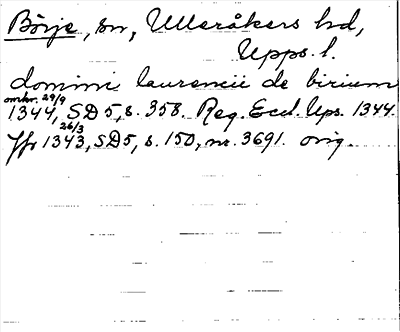 Börje, sn, Ulleråkers hd,
Upps. l.
domini laurencii de birium
omkr. 29/9
1344, SD 5, s. 358. Reg. Eccl. Ups. 1344.
26/3
Jfr 1343, SD 5, s. 150, nr. 3691. orig.